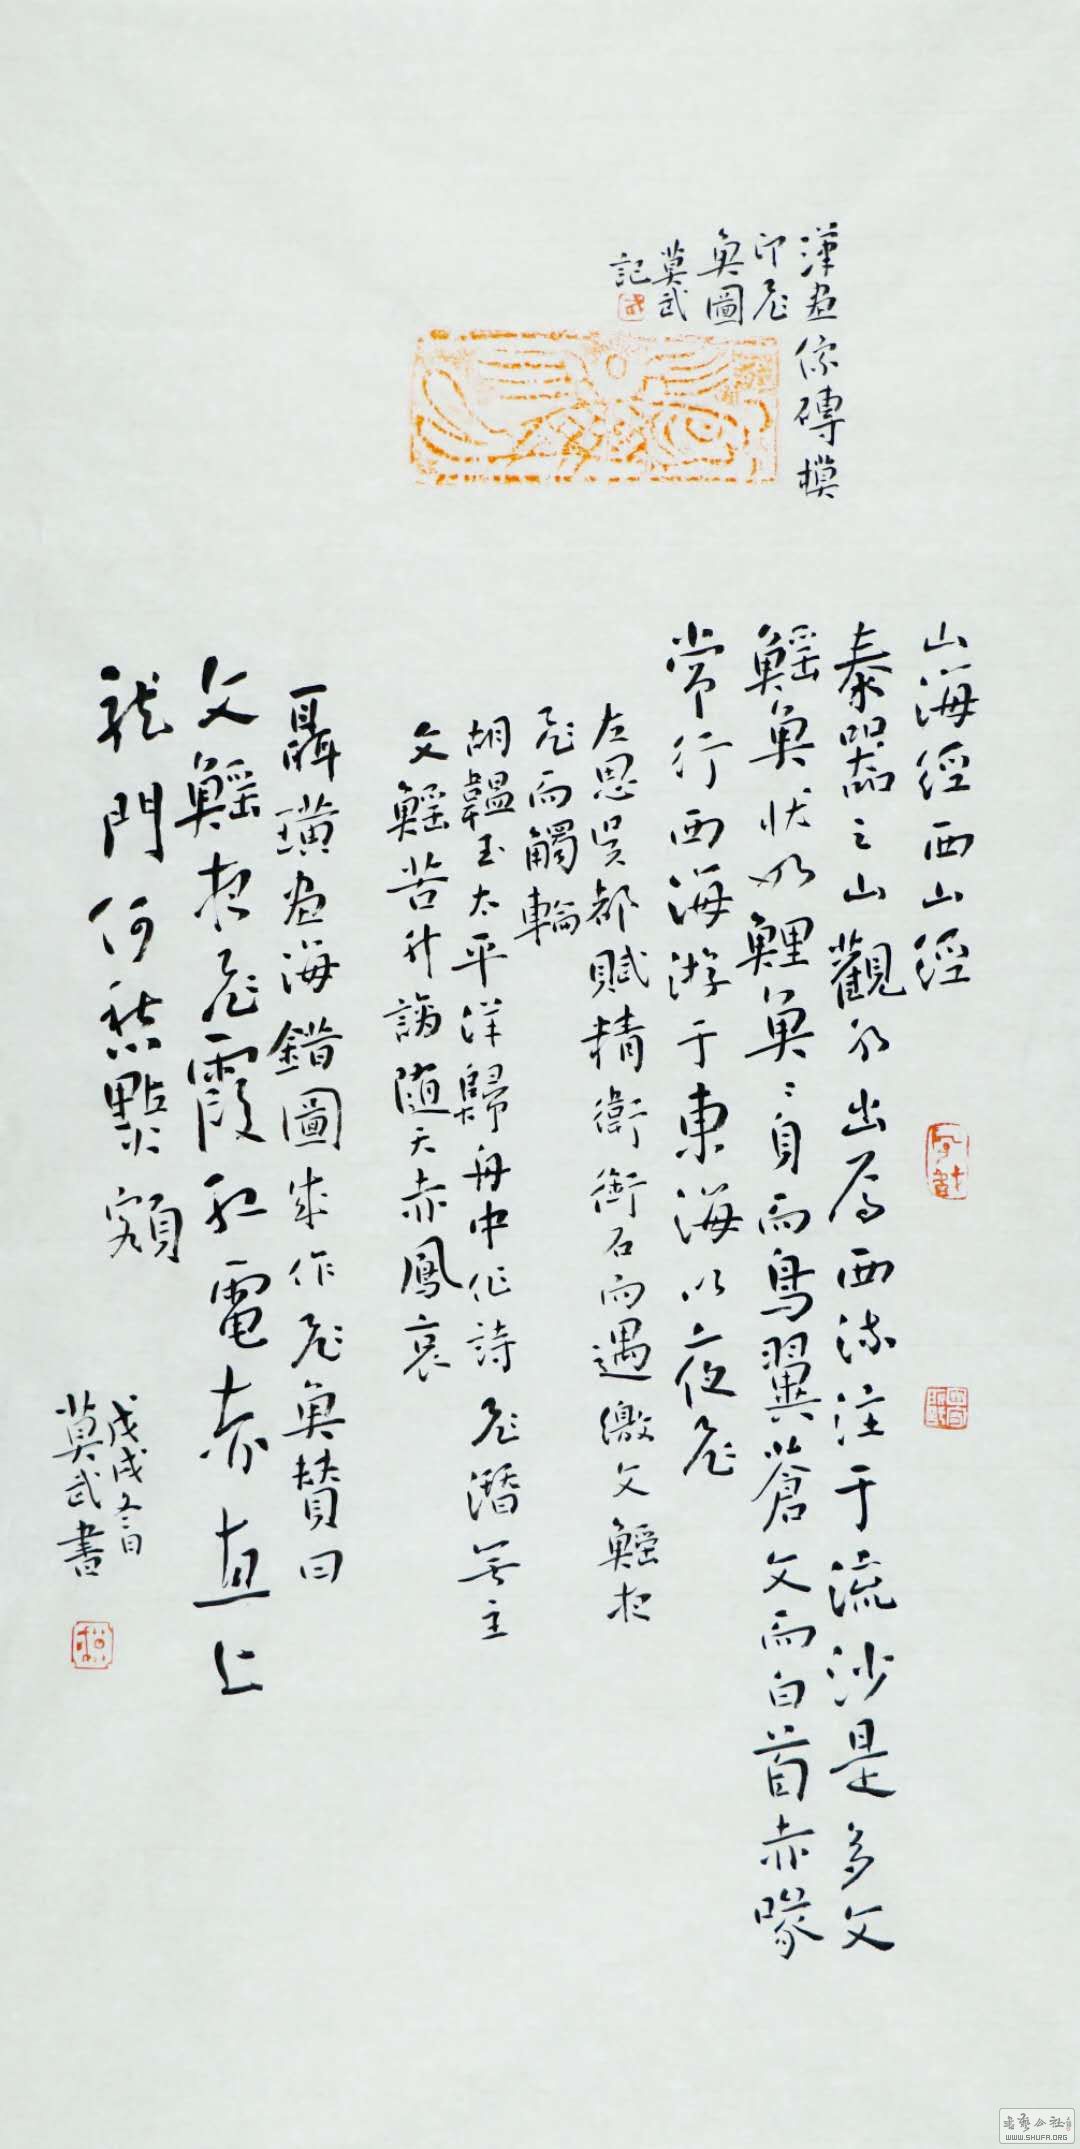 漢畫像磚摸
印飛
魚圖
莫武
記
山海經西山經
泰器之山觀水出焉西流注于流沙是多文
鰩魚狀如鯉魚魚身而鳥翼蒼文而白首赤喙
常行西海游于東海以夜飛
左思吳都賦精衛銜石而遇繳文鰩夜
飛而觸輪
胡韞玉太平洋歸舟中作詩飛潛無主
文鰩苦升謫隨天赤鳳哀
聶璜畫海錯圖成作飛魚贊曰
文鰩夜飛霞紅電赤直上
龍門何愁點額
戊戌冬日
莫武書
書藝公社
WWW.SHUFA.ORG